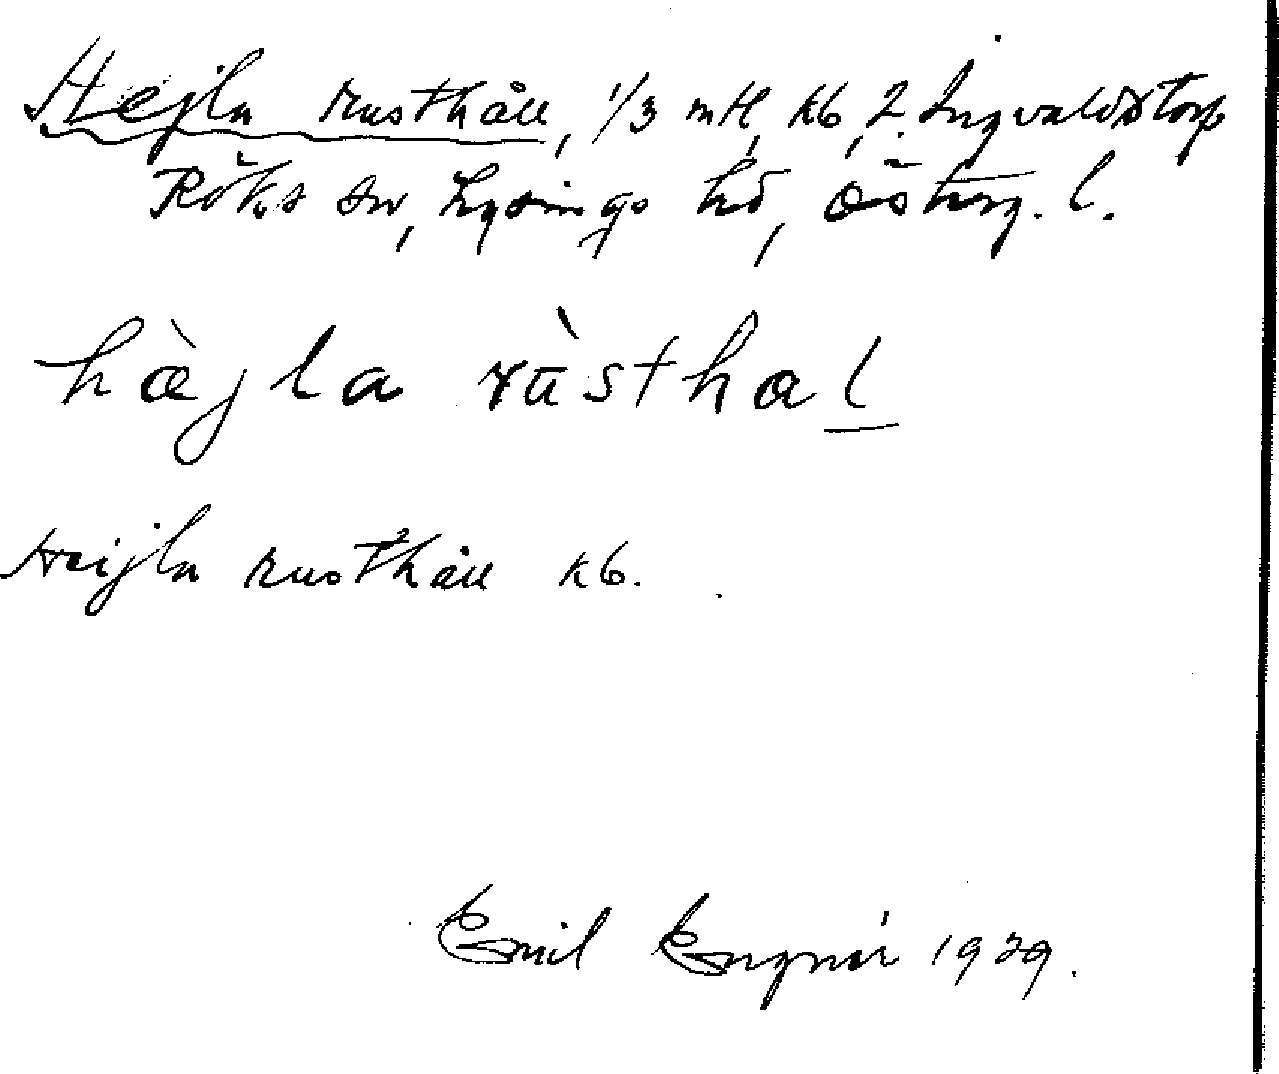 Hejla rusthåll, 1/3 mtl, kb, 2. Ingvaldstorp
Röks sn, Lysings hd, Österg. l.
hàjla rùsthal
Heijla rusthåll kb.
Emil 1929.